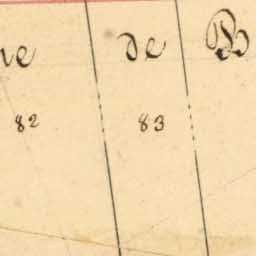 ne de B
82 83